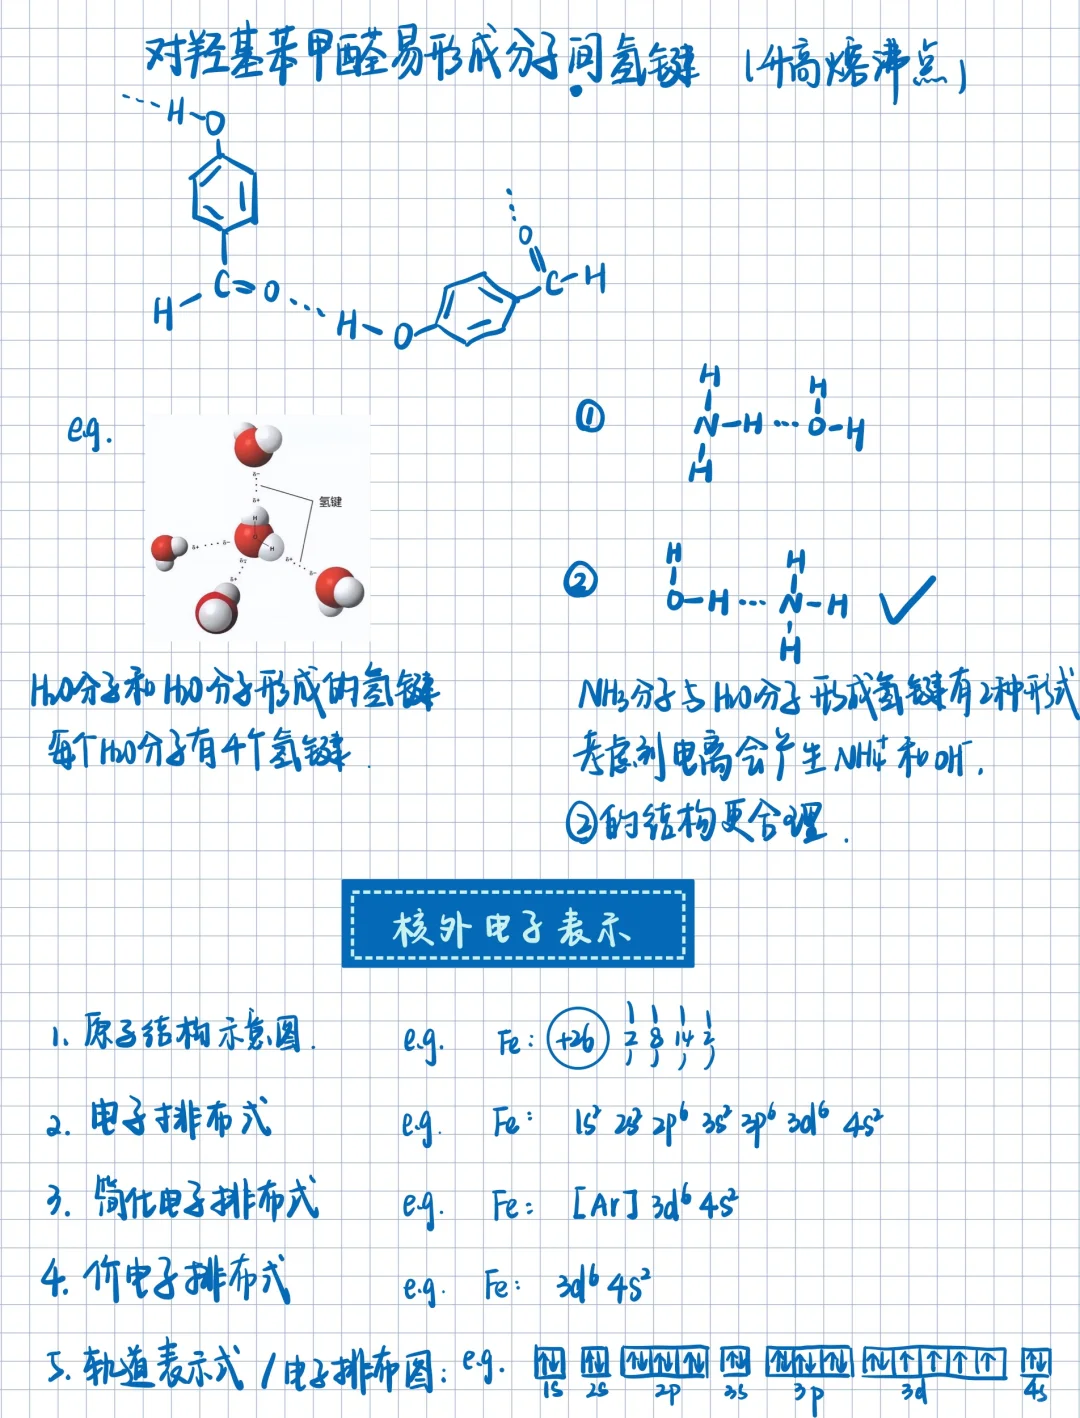 对羟基苯甲醛易形成分子间氢键 (升高熔沸点)
H-O
C=O
H
H-O
O
C-H
e.g.
δ-
δ+
氢键
H
O
H
δ+ δ-
δ-
δ+
δ+ δ-
①
H
N-H…O-H
H
H
②
H
O-H…N-H
H
H
H₂O分子和H₂O分子形成的氢键
每个H₂O分子有4个氢键.
NH₃分子与H₂O分子形成氢键有2种形式
考虑到电离会产生NH₄⁺和OH⁻.
②的结构更合理.
核外电子表示
1. 原子结构示意图. e.g. Fe: +26 2 8 14 2
2. 电子排布式 e.g. Fe: 1s² 2s² 2p⁶ 3s² 3p⁶ 3d⁶ 4s²
3. 简化电子排布式 e.g. Fe: [Ar] 3d⁶ 4s²
4. 价电子排布式 e.g. Fe: 3d⁶ 4s²
5. 轨道表示式/电子排布图: e.g. ↑↓ ↑↓ ↑↓ ↑↓ ↑↓ ↑↓ ↑↓ ↑↓ ↑↓ ↑↓ ↑ ↑ ↑ ↑ ↑↓
1s 2s 2p 3s 3p 3d 4s